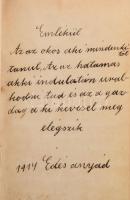 Emlékül
Az az okos aki mindenkitől
tanul, Az az hatamas
akki indulatán ural
kodni tud és az a gaz
dag a ki kevésel meg
elegszik
1914 Édes anyád